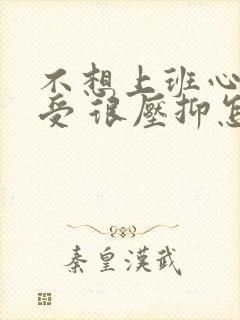 不想上班心
受很壓抑怎
秦皇漢武